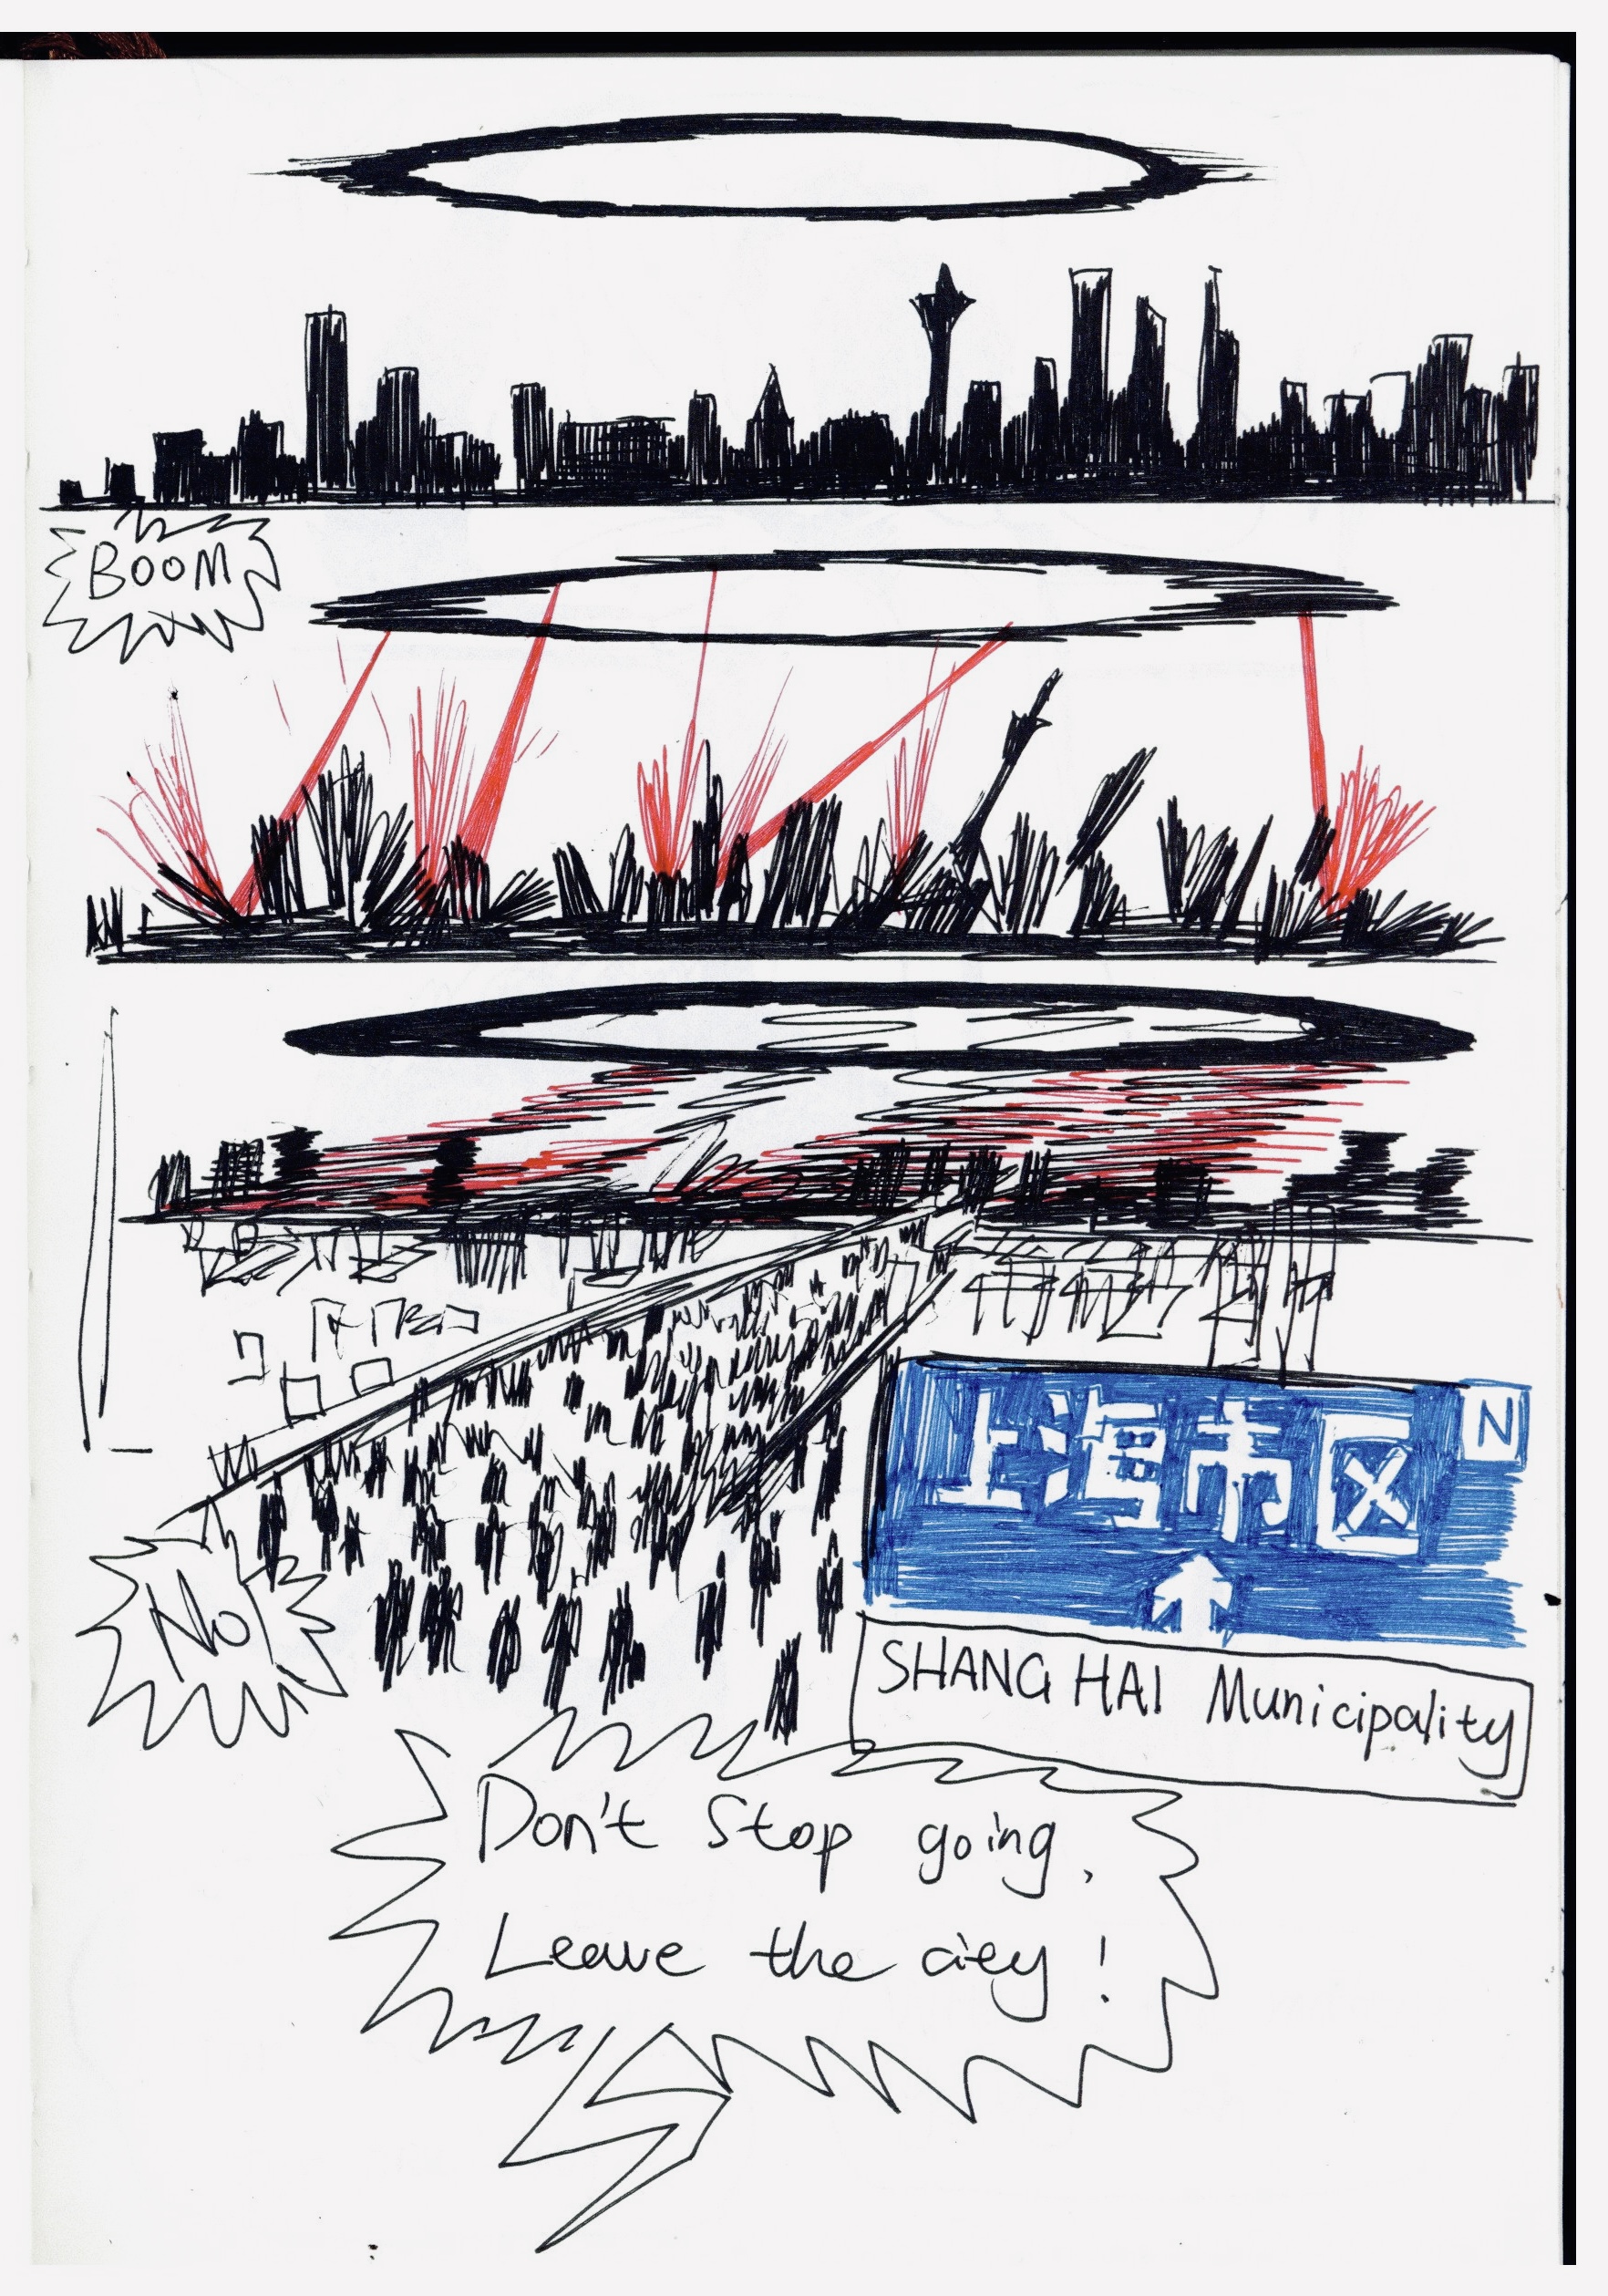 BOOM
上海市区
N
SHANG HAI Municipality
No
Don't Stop going,
Leave the city!